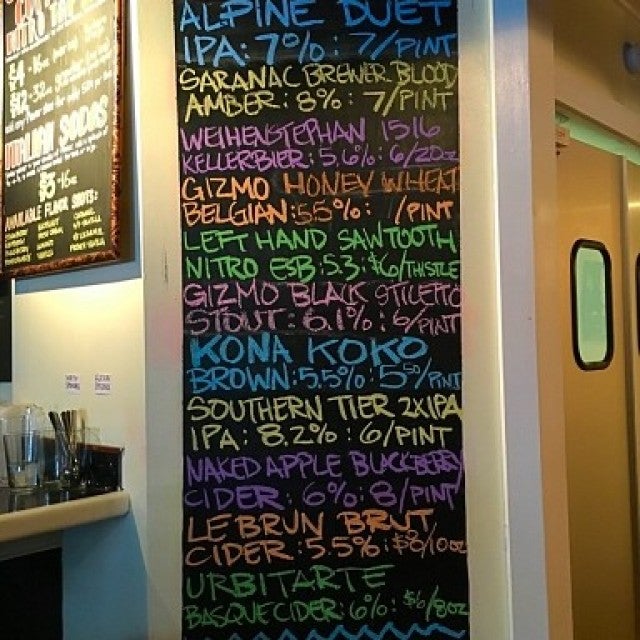 ALPINE DUET
IPA: 7%: 7/PINT
SARANAC BREWER BLOOD
AMBER: 8%: 7/PINT
WEIHENSTEPHAN 1516
KELLERBIER: 5.6%: 6/20oz
GIZMO HONEY WHEAT
BELGIAN: 5.5%: /PINT
LEFT HAND SAWTOOTH
NITRO ESB: 5.3: $6/THISTLE
GIZMO BLACK STILETTO
STOUT: 6.1%: 6/PINT
KONA KOKO
BROWN: 5.5%: 5 50/PINT
SOUTHERN TIER 2XIPA
IPA: 8.2%: 6/PINT
NAKED APPLE BLACKBERRY
CIDER: 6%: 8/PINT
LE BRUN BRUT
CIDER: 5.5%: $8/10oz
URBITARTE
BASQUE CIDER: 6%: $6/8oz
ITALIAN SODAS
$5